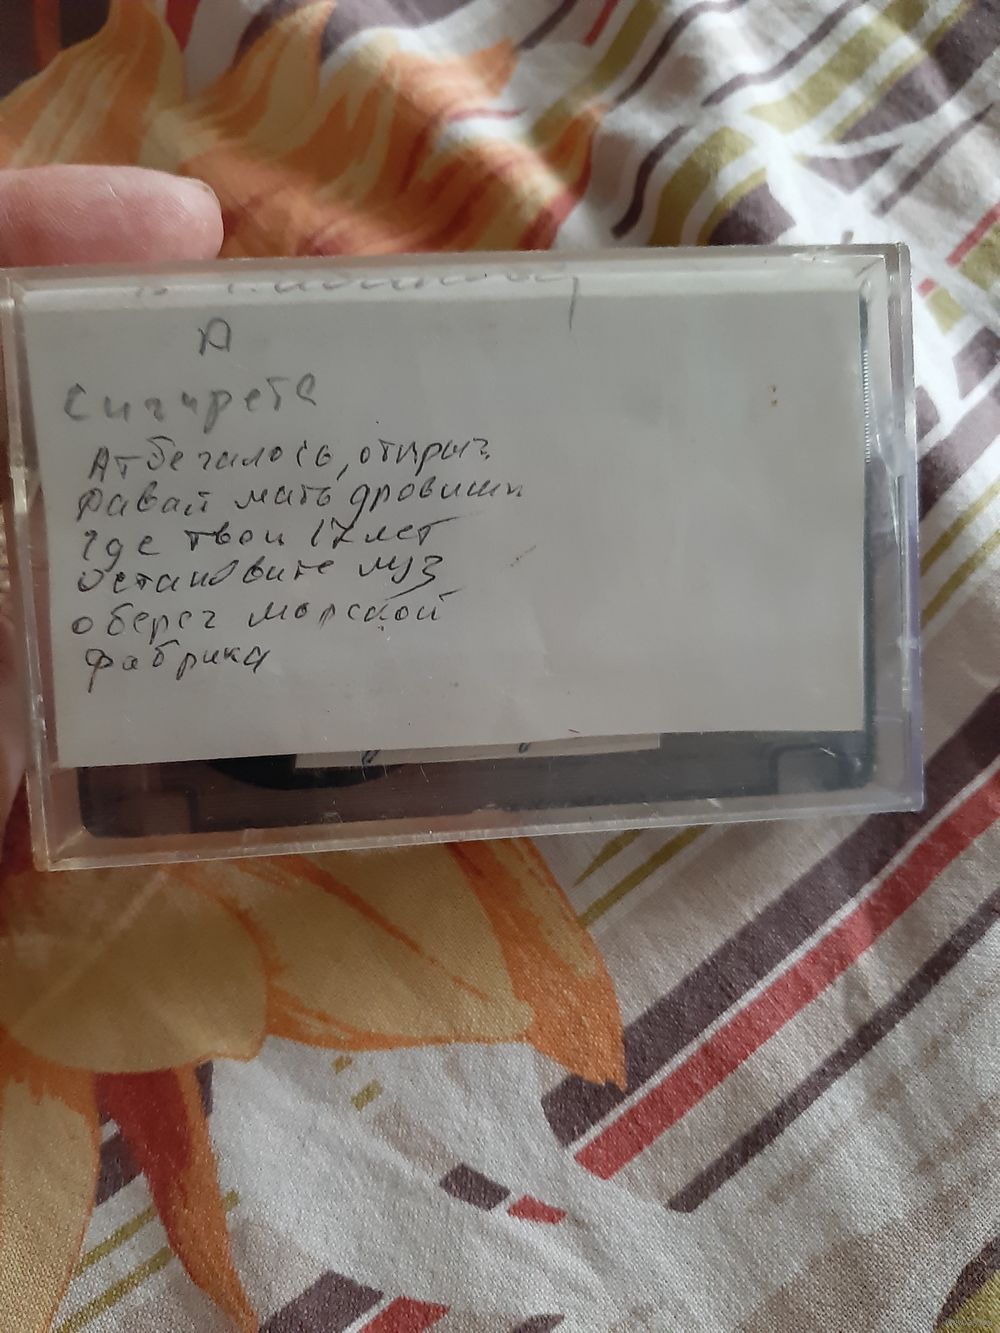 А
Сигирета
Атбегалось, отпрыг
Давай мать дровишк
Где твои 17 лет
Остановите муз
оберег морской
Фабрика